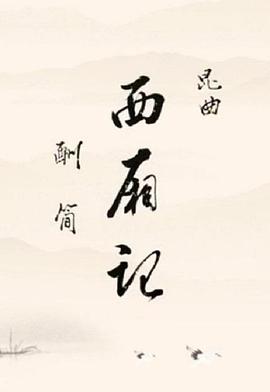 昆曲
西廂记
酬简